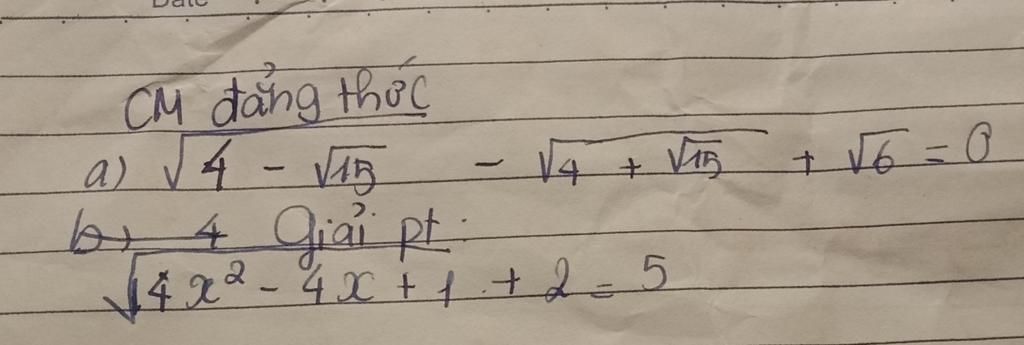 Date
CM đẳng thức
a) √(4 - √15) - √(4 + √15) + √6 = 0
b) 4 Giải pt:
√(4x² - 4x + 1) + 2 = 5